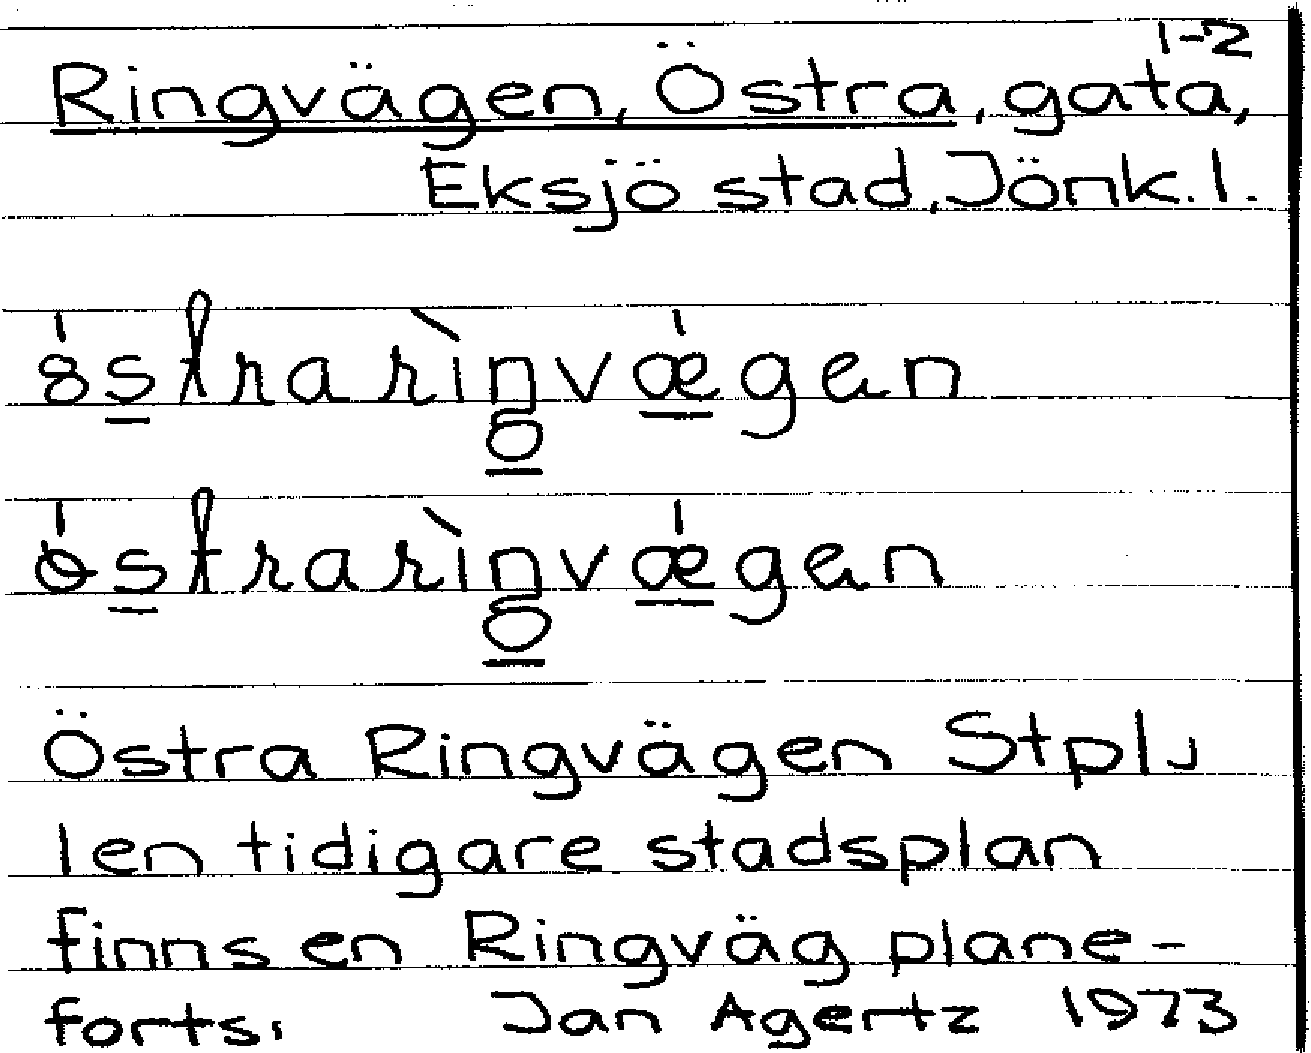 1-2
Ringvägen, Östra, gata,
Eksjö stad, Jönk. l.
östrarìngvǽgen
östrarìngvǽgen
Östra Ringvägen Stplj
I en tidigare stadsplan
finns en Ringväg plane-
forts. Jan Agertz 1973